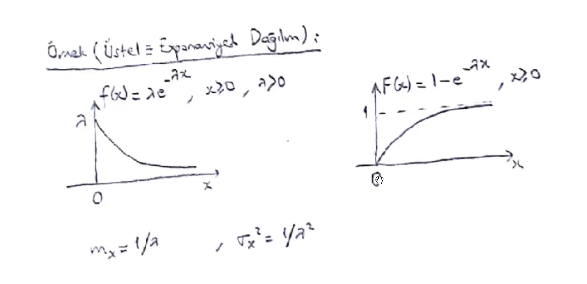 Örnek (Üstel ≡ Exponansiyel Dağılım):
f(x) = λe^{-λx}, x≥0, λ>0
F(x) = 1-e^{-λx}, x≥0
λ
1
x
x
0
0
m_x = 1/λ , σ_x^2 = 1/λ^2